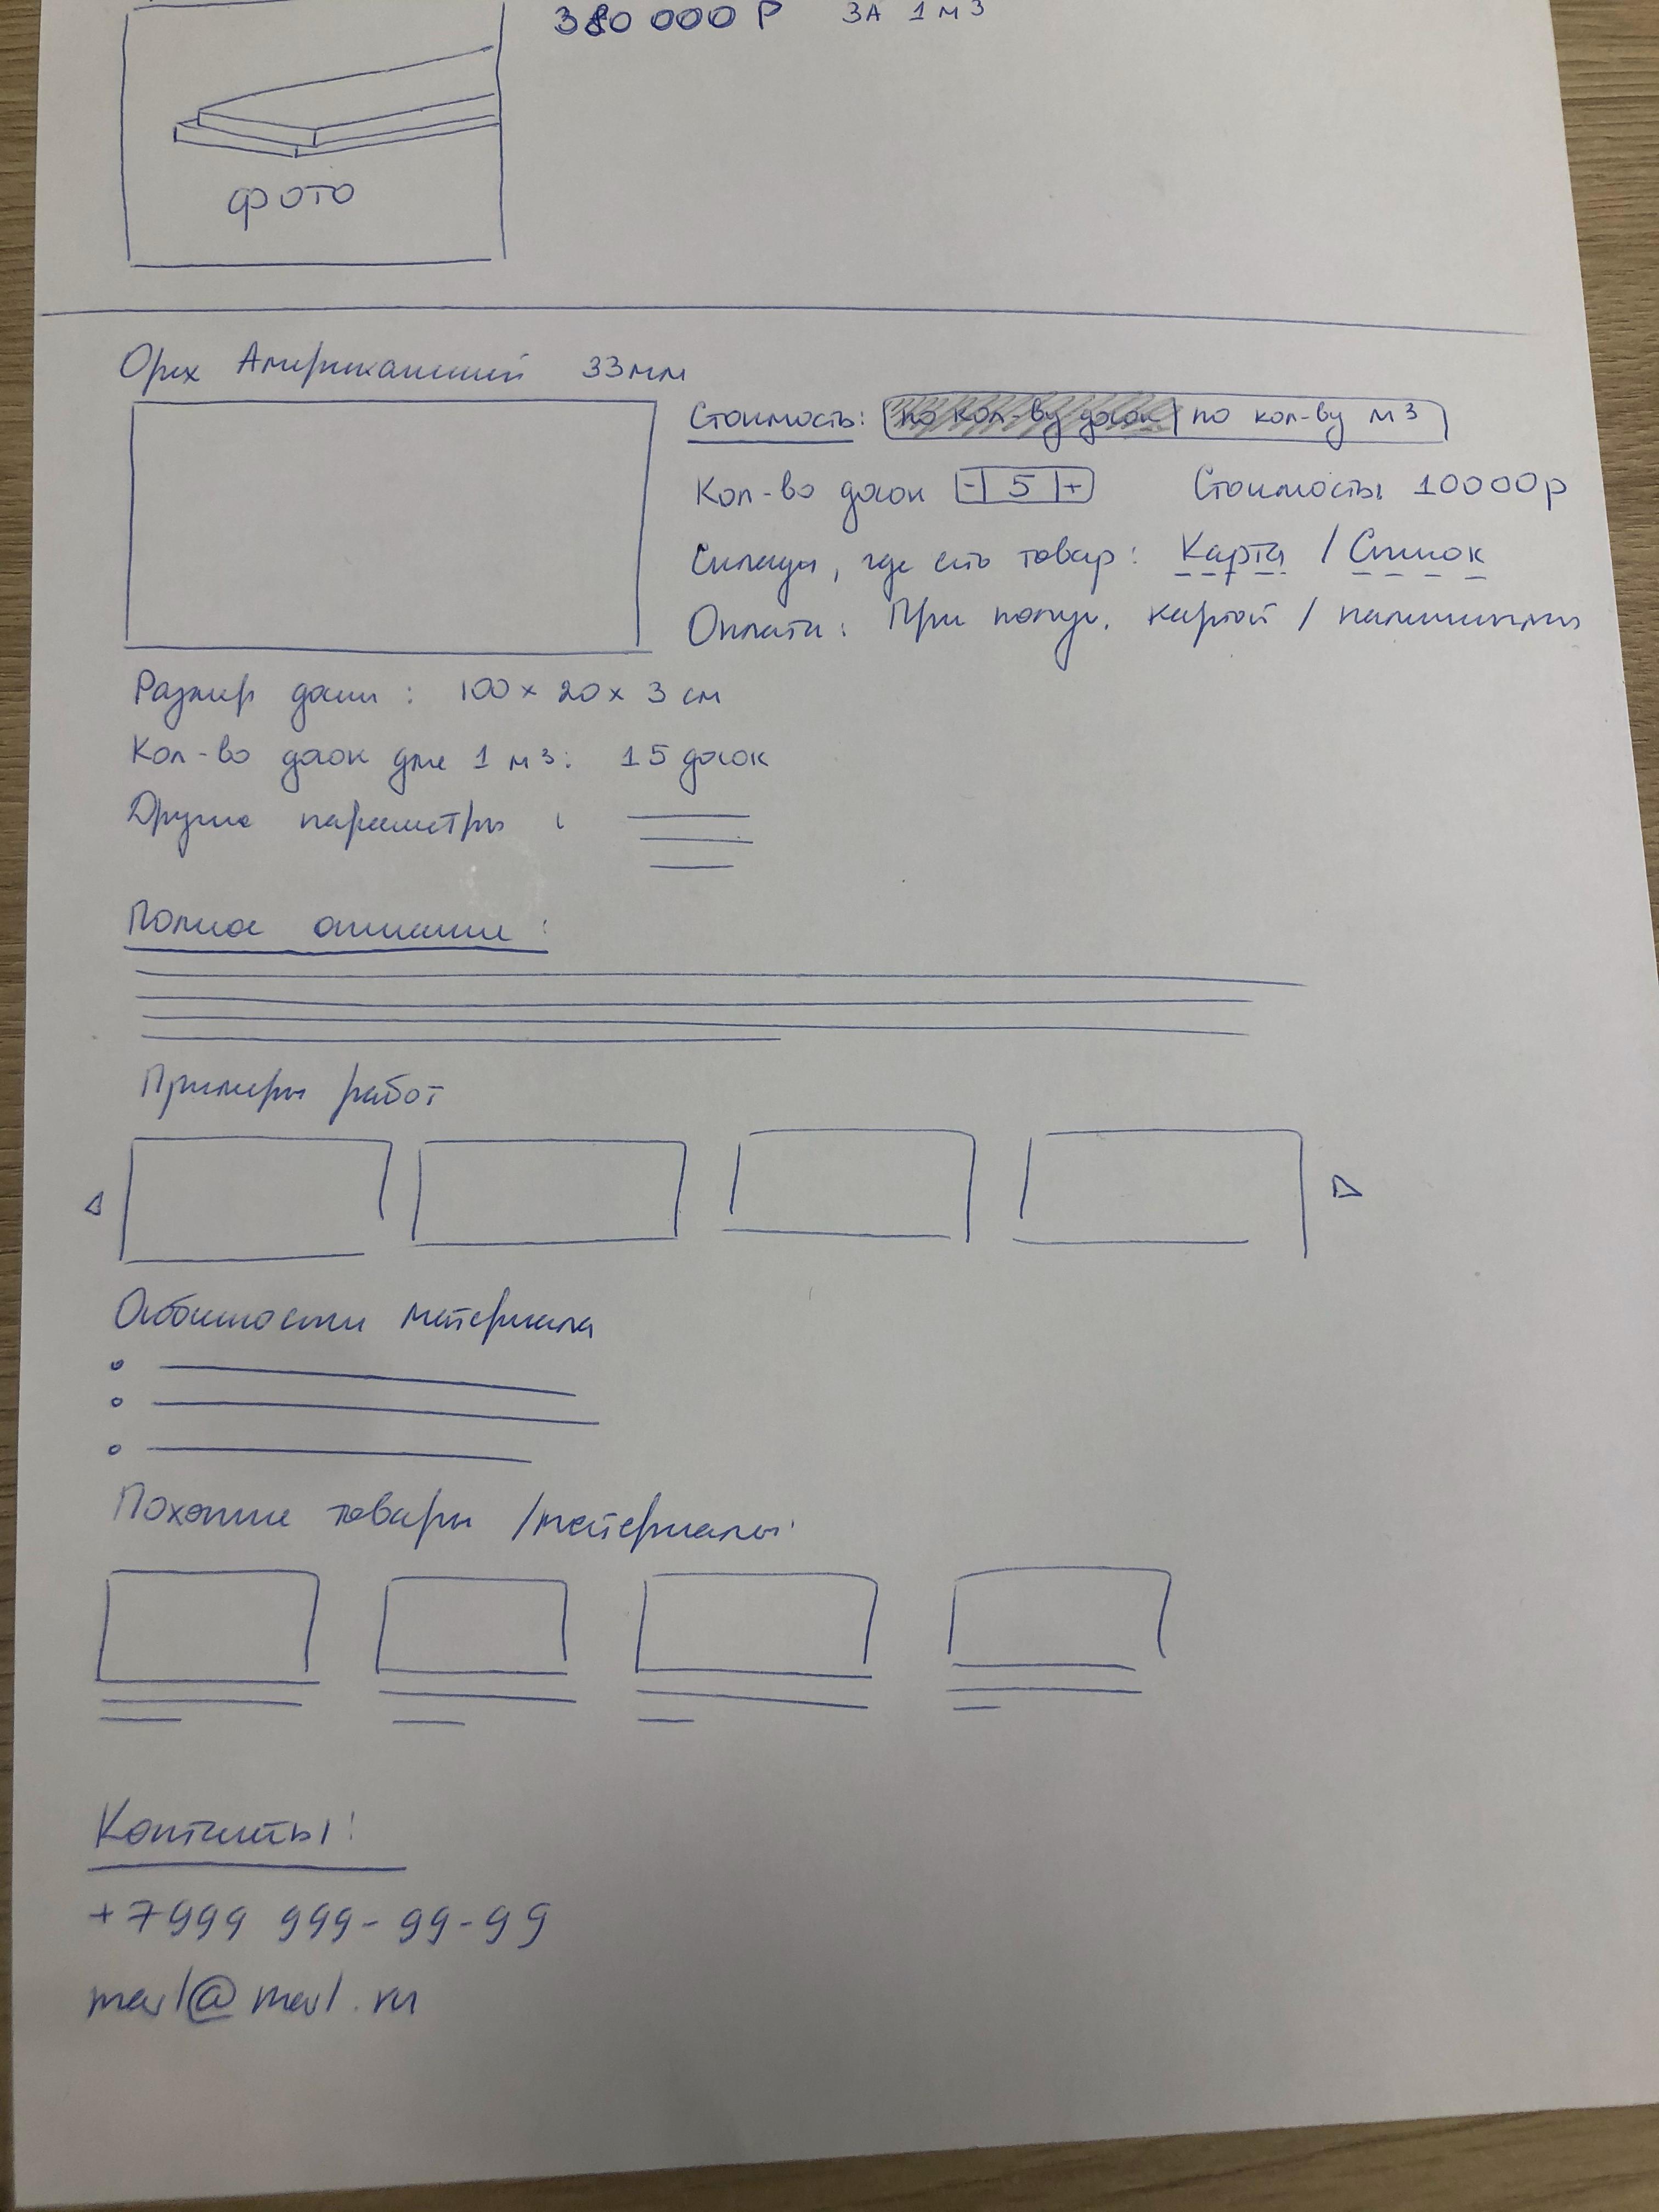 380 000 Р ЗА 1 м3
фото
Орех Американский 33мм
Стоимость: по кол-ву досок по кол-ву м3
Кол-во досок - 5 + Стоимость: 10000р
Склады, где есть товар: Карта / Список
Оплата: При получ. картой / наличными
Размер доски: 100 x 20 x 3 см
Кол-во досок для 1 м3: 15 досок
Другие параметры:
Полное описание:
Примеры работ
Особенности материала
Похожие товары / материалы:
Контакты:
+7999 999-99-99
mail@mail.ru